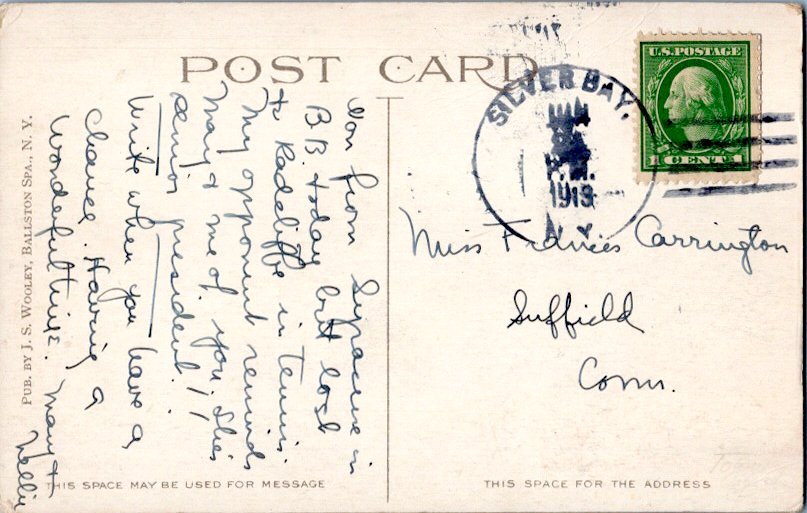 POST CARD
SILVER BAY.
P.M.
1913
N.Y.
U.S. POSTAGE
1 CENT 1
Won from Syracuse in
B.B. today but lost
to Radcliffe in tennis
My opponent reminds
May & me of you. She's
Senior president!!
Write when you have a
chance. Having a
wonderful time. Mary &
Nellie
Miss Frances Carrington
Suffield
Conn.
PUB. BY J. S. WOOLEY, BALLSTON SPA., N. Y.
THIS SPACE MAY BE USED FOR MESSAGE
THIS SPACE FOR THE ADDRESS